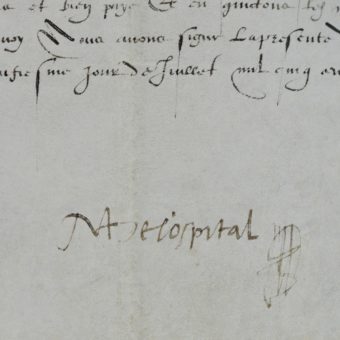 et bien payé et en quictons les
quoy Nous avons signé la presente
jour de Juillet mil cinq cen
M de lospital